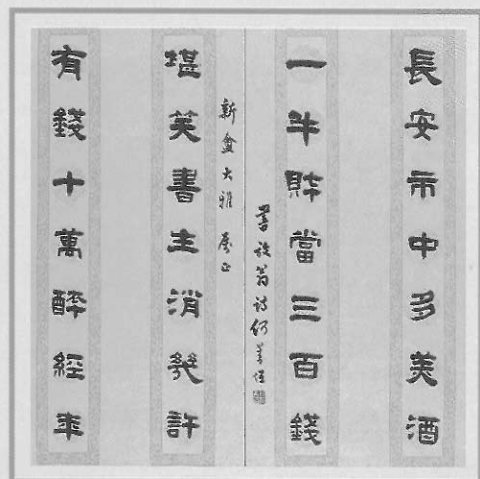 長安市中多美酒
一斗財當三百錢
書放翁詩何
新盦大雅屬正
堪笑書生消幾許
有錢十萬醉經年